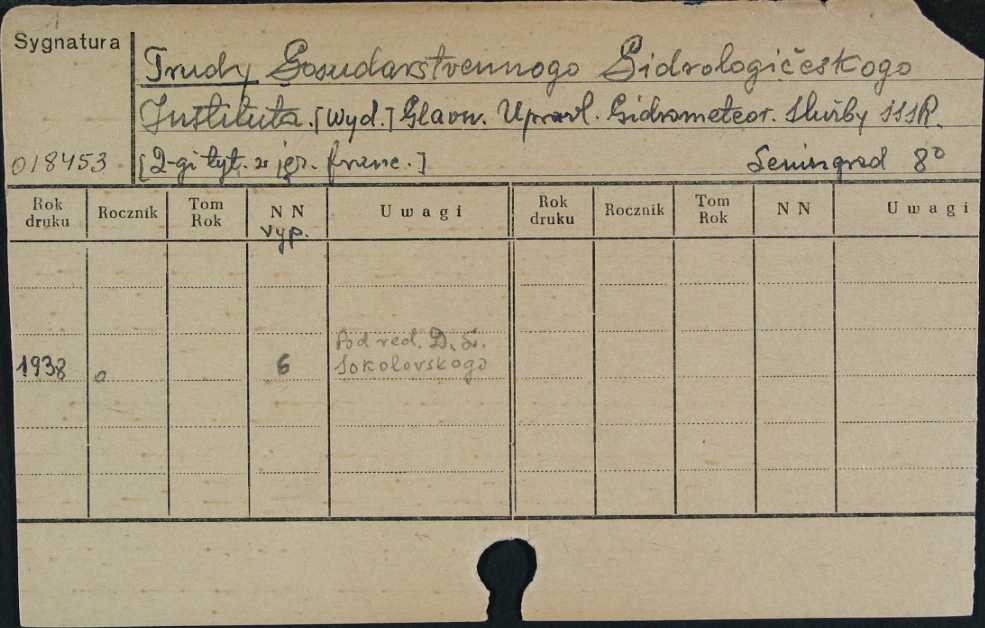 Sygnatura
Trudy Gosudarstvennogo Gidrologičeskogo
Instituta. [Wyd.] Glavn. Upravl. Gidrometeor. Služby SSSR.
018453 [2-gi tyt. w jęz. franc.] Leningrad 8°
Rok druku Rocznik Tom Rok NN Uwagi Rok druku Rocznik Tom Rok NN Uwagi
vyp.
Pod red. D. L.
1938 6 Sokolovskogo